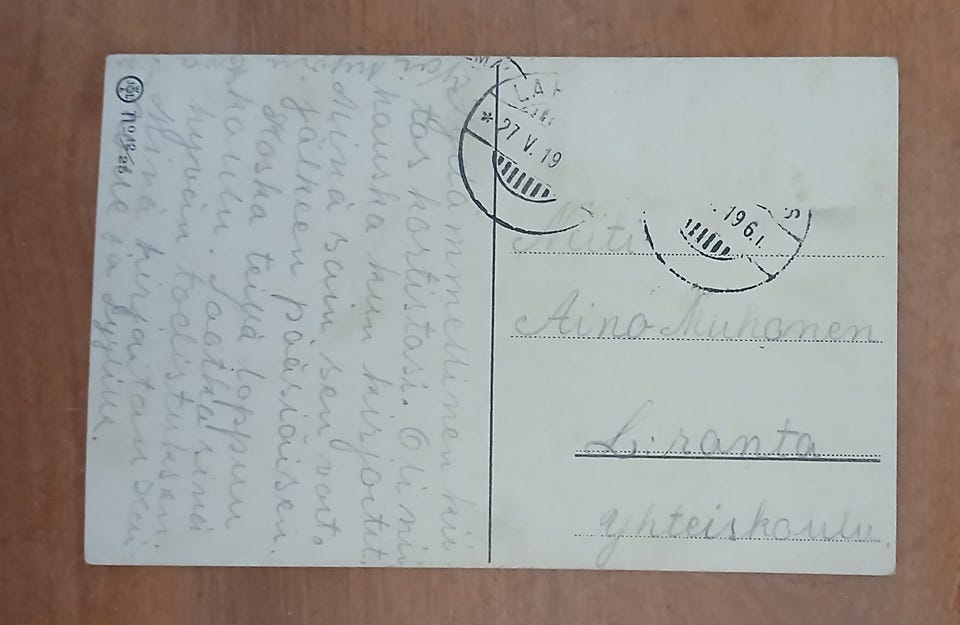 Sydämmellinen kii
tos kortistasi. Oli niin
hauska kun kirjoitit.
Minä sain sen vasta
jälkeen pääsiäisen.
Koska teijä loppuu
koulu. Saatka sinä
hyvän todistuksen.
Minä kirjoitan
ja Lyyliu.
No 18 26
LAP
* 27 V. 19
19 6.1
S
Neiti
Aino Muhonen
L: ranta
yhteiskoulu.